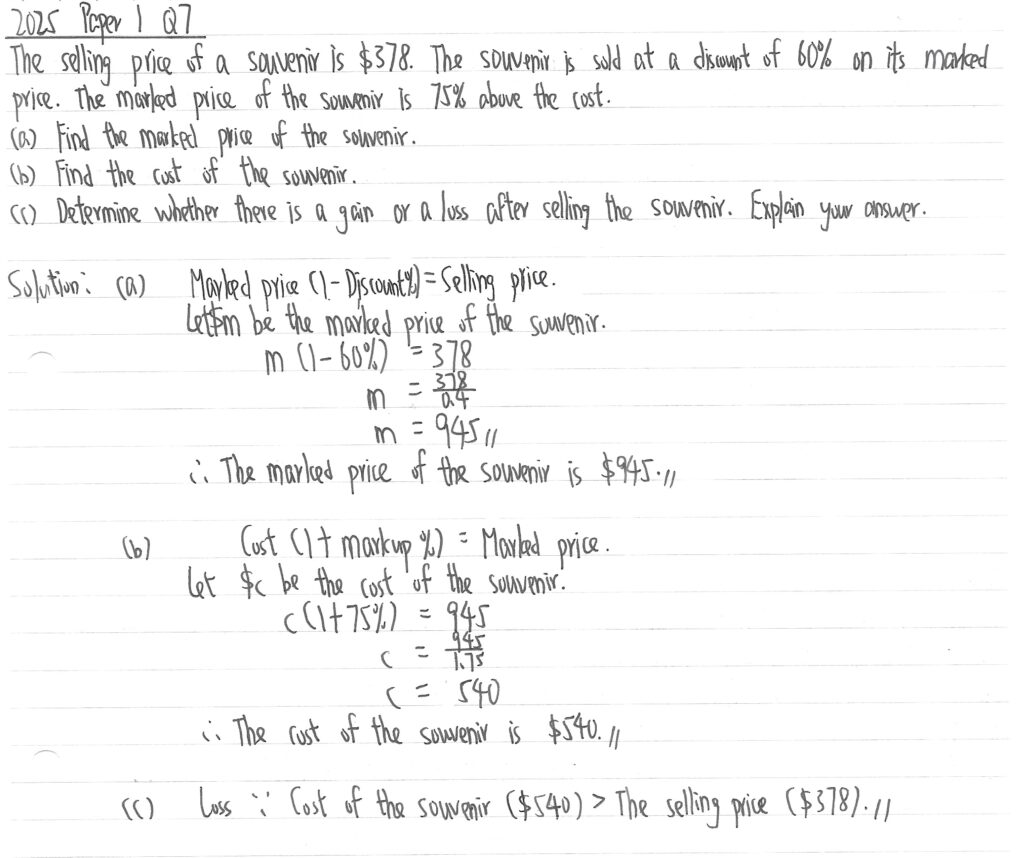 2025 Paper 1 Q7
The selling price of a souvenir is $378. The souvenir is sold at a discount of 60% on its marked
price. The marked price of the souvenir is 75% above the cost.
(a) Find the marked price of the souvenir.
(b) Find the cost of the souvenir.
(c) Determine whether there is a gain or a loss after selling the souvenir. Explain your answer.
Solution: (a) Marked price (1 - Discount%) = Selling price.
Let $m be the marked price of the souvenir.
m (1 - 60%) = 378
m = 378/0.4
m = 945 //
∴ The marked price of the souvenir is $945. //
(b) Cost (1 + markup %) = Marked price.
Let $c be the cost of the souvenir.
c (1 + 75%) = 945
c = 945/1.75
c = 540
∴ The cost of the souvenir is $540. //
(c) Loss ∵ Cost of the souvenir ($540) > The selling price ($378). //